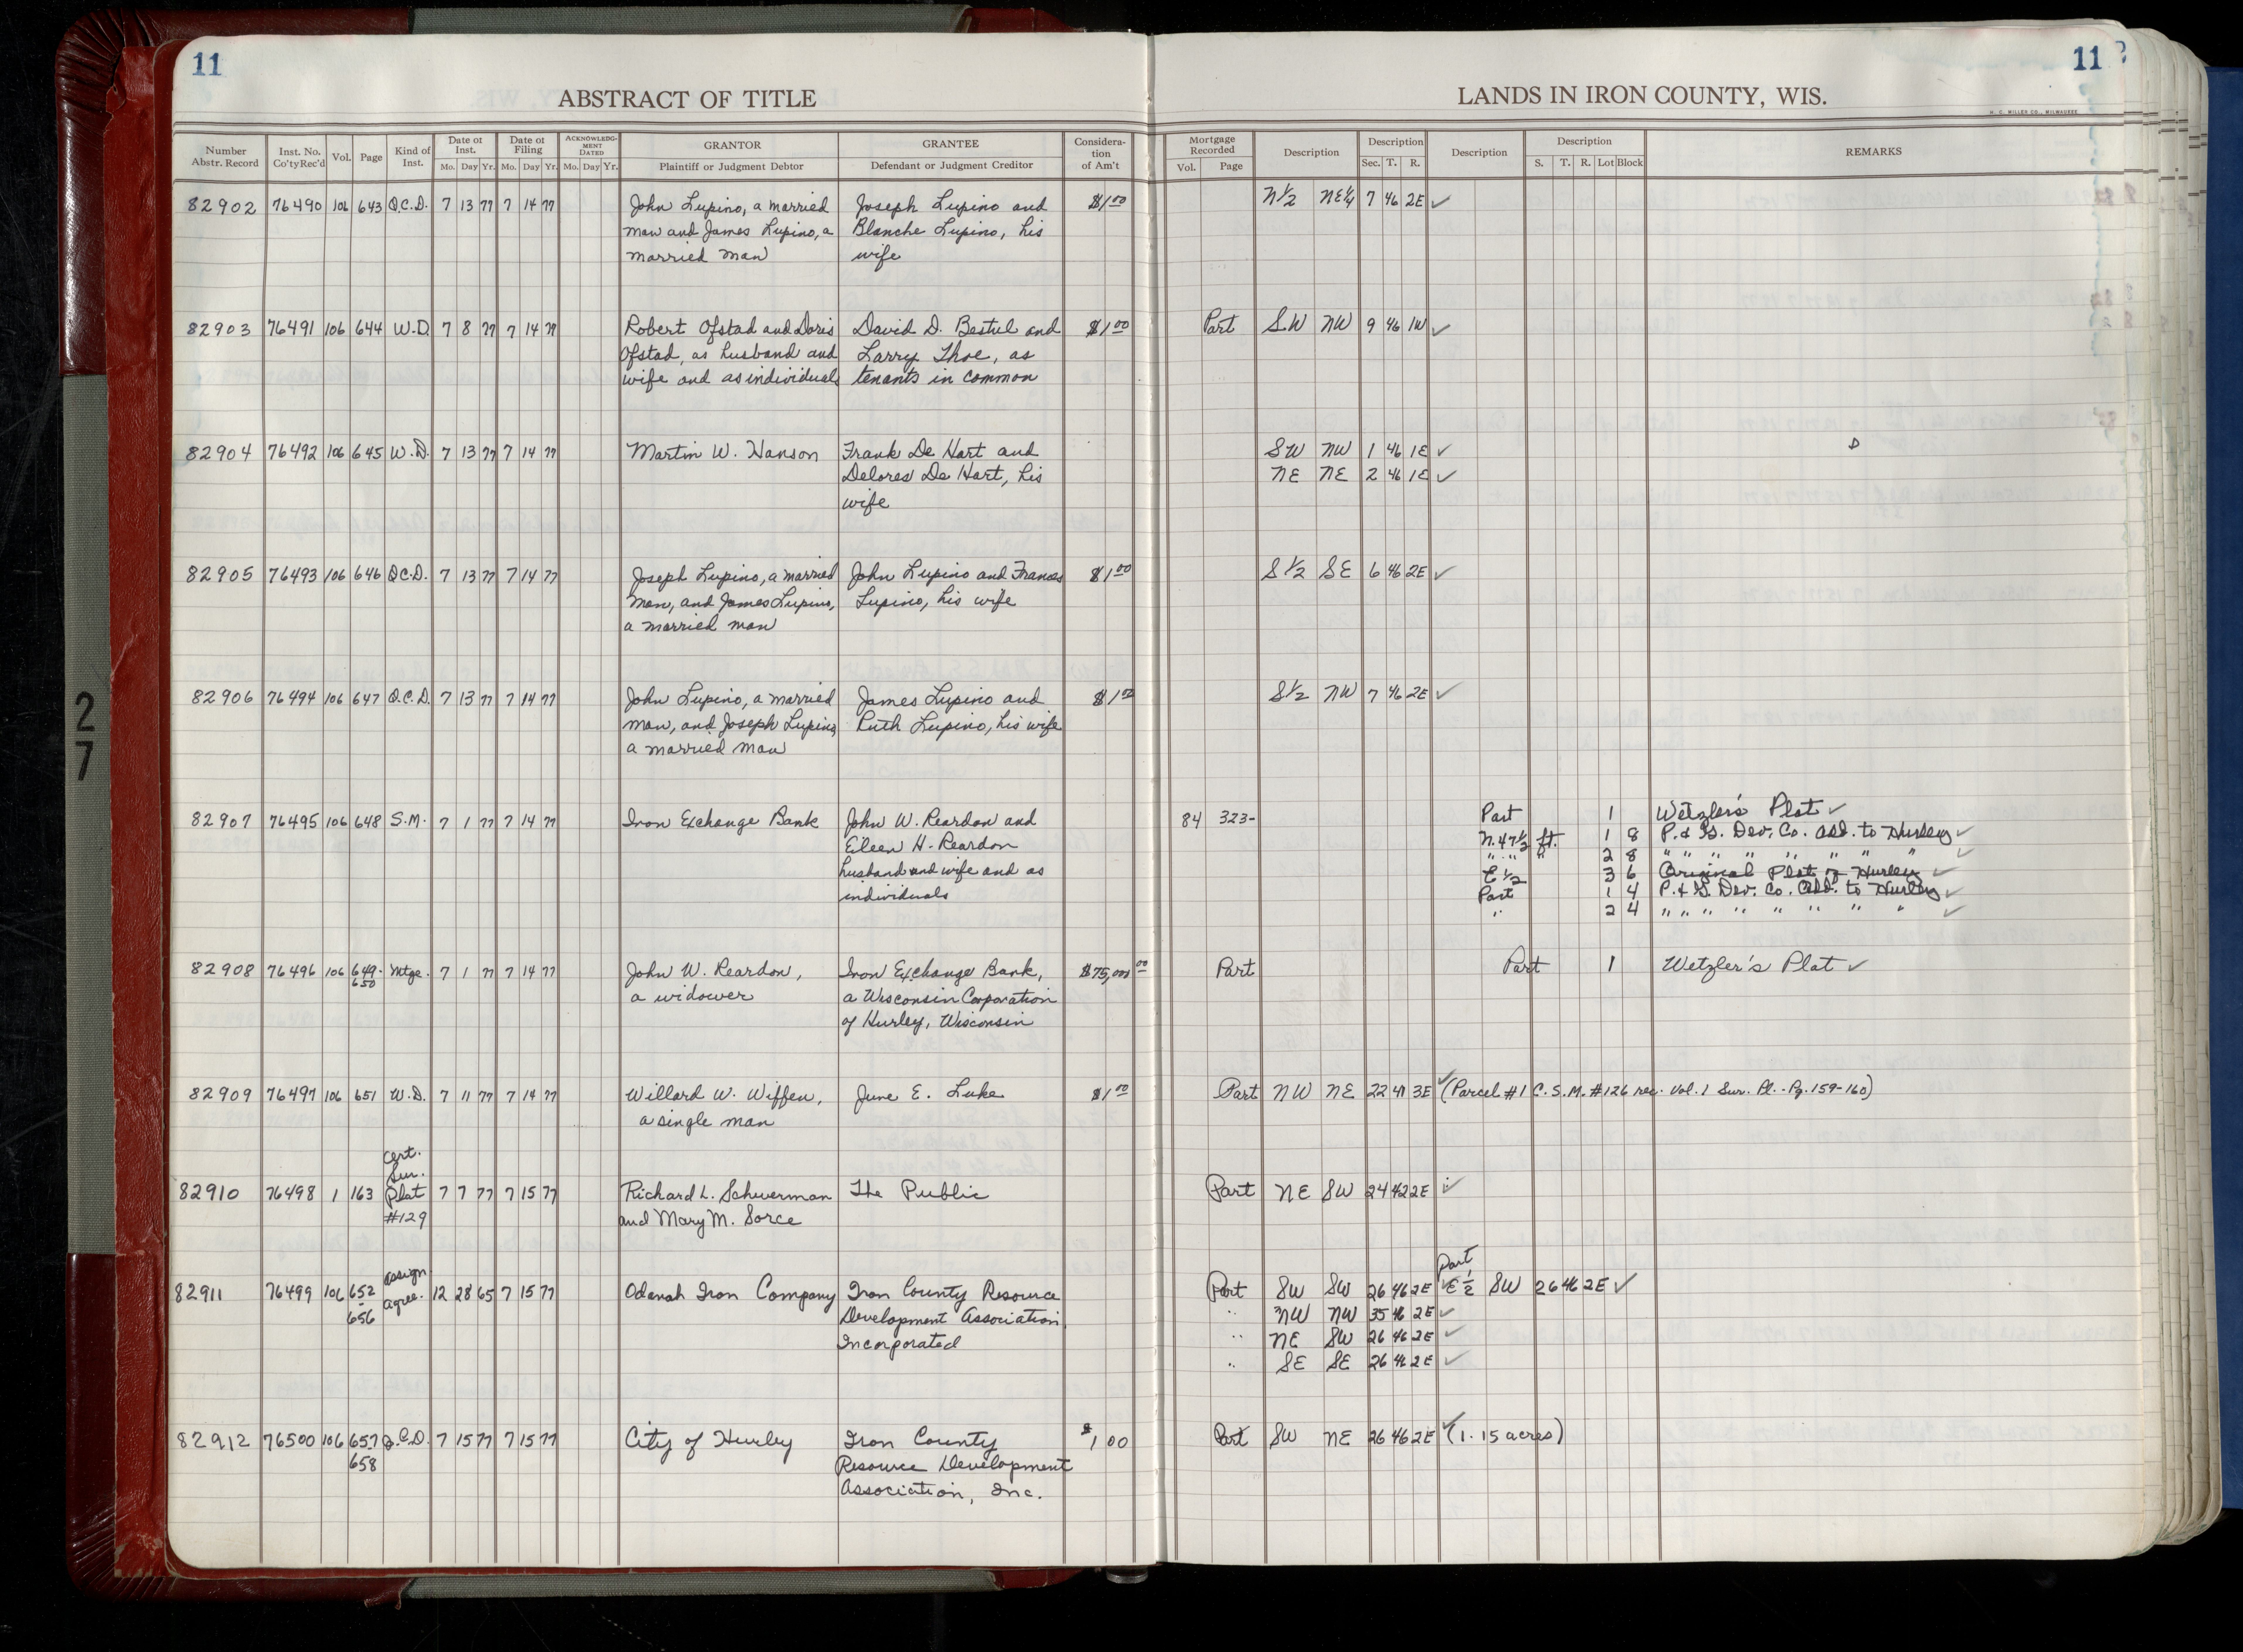 11
ABSTRACT OF TITLE
Number Abstr. Record | Inst. No. Co'ty Rec'd | Vol. | Page | Kind of Inst. | Date of Inst. Mo. Day Yr. | Date of Filing Mo. Day Yr. | ACKNOWLEDGMENT DATED Mo. Day Yr. | GRANTOR Plaintiff or Judgment Debtor | GRANTEE Defendant or Judgment Creditor | Consideration of Am't
11
LANDS IN IRON COUNTY, WIS.
H. C. MILLER CO., MILWAUKEE
Mortgage Recorded Vol. Page | Description | Description Sec. T. R. | Description | Description S. T. R. Lot Block | REMARKS
82902 76490 106 643 Q.C.D. 7 13 77 7 14 77 John Lupino, a married Joseph Lupino and $1 00 N 1/2 NE 1/4 7 46 2E ✓
man and James Lupino, a Blanche Lupino, his
married man wife
82903 76491 106 644 W.D. 7 8 77 7 14 77 Robert Ofstad and Doris David D. Bestul and $1 00 Part SW NW 9 46 1W ✓
Ofstad, as husband and Larry Thoe, as
wife and as individuals tenants in common
82904 76492 106 645 W.D. 7 13 77 7 14 77 Martin W. Hanson Frank De Hart and SW NW 1 46 1E ✓
Delores De Hart, his NE NE 2 46 1E ✓
wife
82905 76493 106 646 Q.C.D. 7 13 77 7 14 77 Joseph Lupino, a married John Lupino and Frances $1 00 S 1/2 SE 6 46 2E ✓
man, and James Lupino, Lupino, his wife
a married man
82906 76494 106 647 Q.C.D. 7 13 77 7 14 77 John Lupino, a married James Lupino and $1 00 S 1/2 NW 7 46 2E ✓
man, and Joseph Lupino, Ruth Lupino, his wife
a married man
82907 76495 106 648 S.M. 7 1 77 7 14 77 Iron Exchange Bank John W. Reardon and 84 323- Part 1 Wetzler's Plat ✓
Eileen H. Reardon N. 47 1/2 ft. 1 8 P. & G. Dev. Co. Add. to Hurley ✓
" " " 2 8 " " " " " " " " ✓
husband and wife and as E 1/2 3 6 Original Plat of Hurley ✓
individuals Part 1 4 P. & G. Dev. Co. Add. to Hurley ✓
" 2 4 " " " " " " " " ✓
82908 76496 106 649-650 Mtge. 7 1 77 7 14 77 John W. Reardon, Iron Exchange Bank, $75,000 00 Part Part 1 Wetzler's Plat ✓
a widower a Wisconsin Corporation
of Hurley, Wisconsin
82909 76497 106 651 W.D. 7 11 77 7 14 77 Willard W. Wiffen, June E. Luke $1 00 Part NW NE 22 41 3E ✓ (Parcel #1 C.S.M. #126 rec. Vol. 1 Sur. Pl. - Pg. 159-160)
a single man
Cert.
Sur.
82910 76498 1 163 Plat 7 7 77 7 15 77 Richard L. Schuerman The Public Part NE SW 24 42 2E ✓
#129 and Mary M. Sorce
assign. Part
82911 76499 106 652-656 agree. 12 28 65 7 15 77 Odanah Iron Company Iron County Resource Part SW SW 26 46 2E ✓ E 1/2 SW 26 46 2E ✓
Development Association " NW NW 35 46 2E ✓
Incorporated " NE SW 26 46 2E ✓
" SE SE 26 46 2E ✓
82912 76500 106 657 Q.C.D. 7 15 77 7 15 77 City of Hurley Iron County $1 00 Part SW NE 26 46 2E ✓ (1.15 acres)
658 Resource Development
Association, Inc.
27